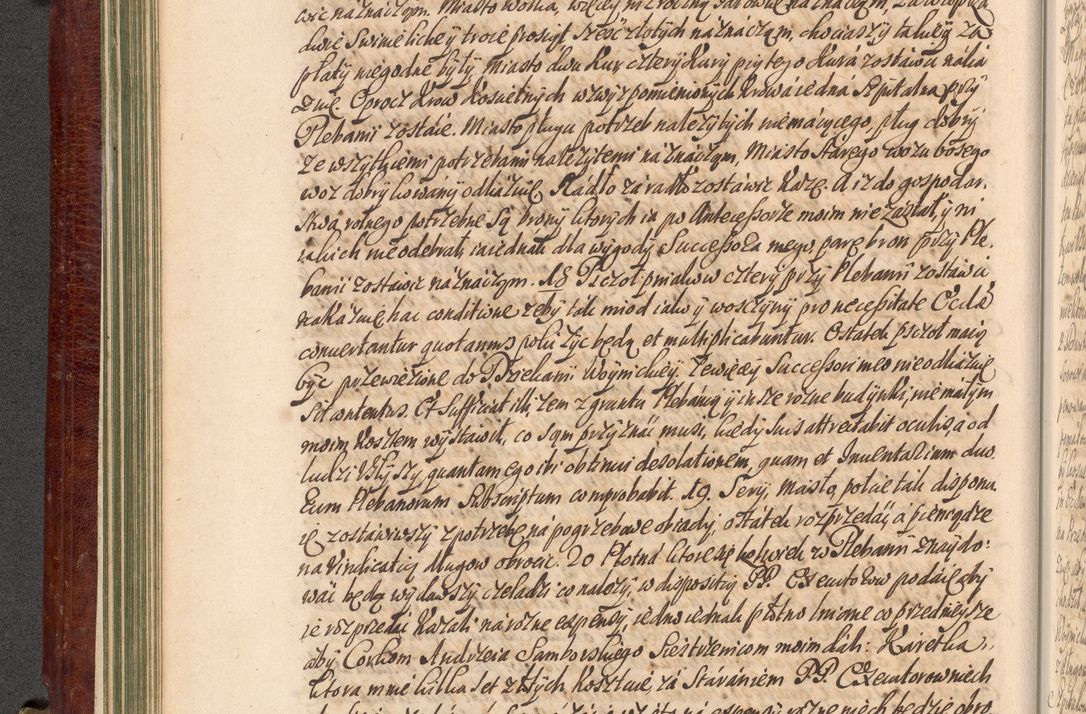 cwie naznaczam. Miasto Wołka, więcey nizrocżny zarownie naznaczam, za wieprza
dwie Swinie liche y troie prosiąt sześć złotych naznaczam, chociaszy takiey za
płaty niegodne były, Miasto dwu Kur cztery Kury piątego Kura zostawic naka
zuię. Oprocz Krow Kościelnych wzwyz pomienionych Krowa iedna Szpitalna przy
Plebanii zostaie. Miasto pługu potrzeb należytych niemaiącego, pług dobry
ze wszytkiemi potrzebami należytemi naznaczam, Miasto starego wozu bosego
woz dobry kowany odkazuię Radło zaradło zostawic każę. A iz do gospodar.
stwa rolnego potrzebne są brony ktorych ia po Antecessorze moim nie zastał, y ni
iakich nieodebrał, iaiednak dla wygody Successora mego, parę bron przy Ple.
banii zostawic naznaczam. 18 Pszczoł pniakow cztery przy Plebanii zostawić
nakazuię hac conditione zeby tak miod iako y woszczyny pro necessitate Ecclae
convertantur quotannis poki żyć będą et multiplicabuntur. Ostatek pszczoł maią
być przewiezione do Dziekanii Woynickiey. Zewięcey Successori meo nieodkazuię
Sit contentus. Et sufficiat illi, zem z gruntu Plebanią y insze rożne budynki, nie małym
moim Kosztem wystawił, co sąm przyznać musi, kiedy suis attrectabit oculis, a od
ludzi usłyszy quantam ego ibi obtinui desolationem, quam et Inventarium duo.
rum Plebanorum Subscriptum comprobabit. 19. Sery, Masło, połcie tak dispono
ię zostawiwszy z potrzebę na pogrzebowe obiady, ostatek rozprzedać, a pieniądze
na vindicatią długow obrocić. 20 Płotna ktore się kolwiek w Plebanii znaydo:
wać będą wydawszy czeladzi co należy, w dispositią PP. Exekutorow podaię aby
ie rozprzedać kazali na rożne expensy, iedno iednak płotno lniane co przednieysze
aby Corkom Andrzeia Samborskiego Siestrzenicom moim dali: Karetka,
Ktora mnie kilka set złotych Kosztuie, za staraniem PP. Exekutorow niech